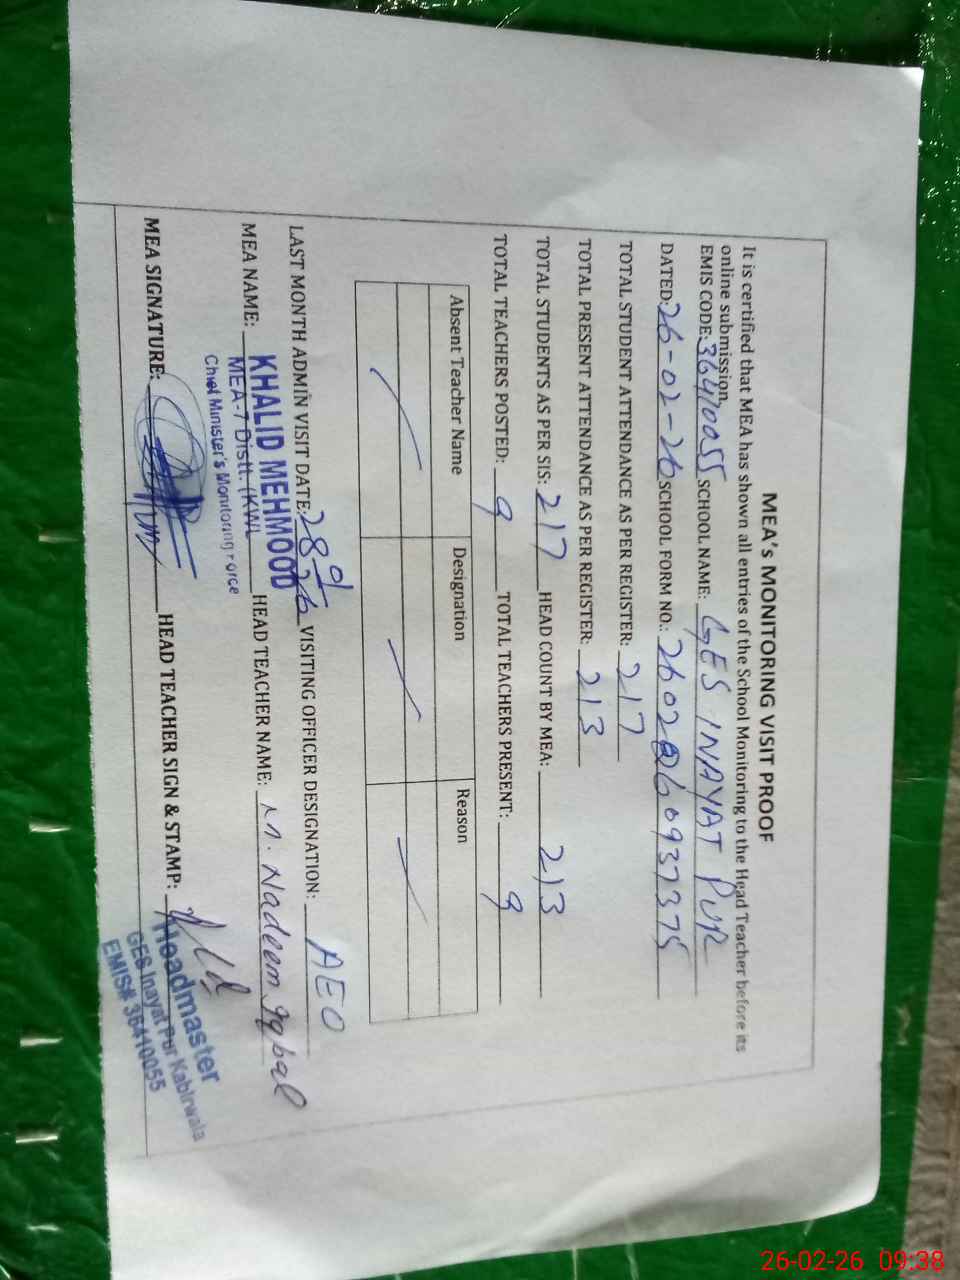 MEA's MONITORING VISIT PROOF
It is certified that MEA has shown all entries of the School Monitoring to the Head Teacher before its
online submission.
EMIS CODE: 36410055 SCHOOL NAME: GES INAYAT PUR
DATED: 26-02-26 SCHOOL FORM NO.:
TOTAL STUDENT ATTENDANCE AS PER REGISTER: 217
TOTAL PRESENT ATTENDANCE AS PER REGISTER: 213
TOTAL STUDENTS AS PER SIS: 217 HEAD COUNT BY MEA: 213
TOTAL TEACHERS POSTED: 9 TOTAL TEACHERS PRESENT: 9
Absent Teacher Name Designation Reason
LAST MONTH ADMIN VISIT DATE: 28-01-26 VISITING OFFICER DESIGNATION: AEO
MEA NAME: KHALID MEHMOOD HEAD TEACHER NAME: M. Nadeem Iqbal
MEA-7 Distt. (KWL
Chief Minister's Monitoring Force
MEA SIGNATURE: HEAD TEACHER SIGN & STAMP:
Headmaster
GES Inayat Pur Kabirwala
EMIS# 36410055
26-02-26 09:38